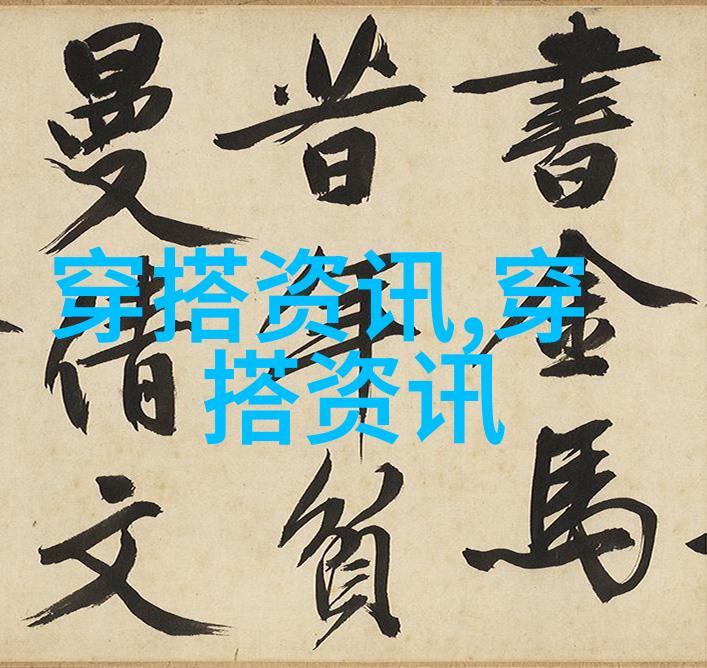 書金馬
昔年負
曼倩文
穿搭资讯,穿
搭资讯